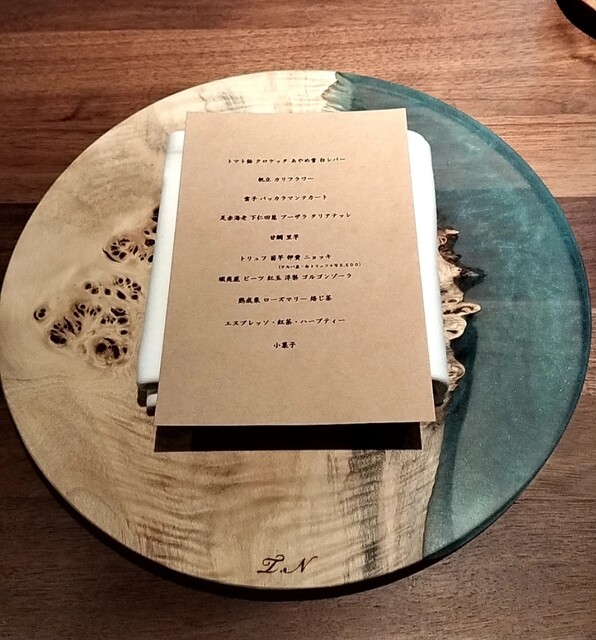 トマト飴 クロケッタ あやめ雪 白レバー
帆立 カリフラワー
雲子 バッカラマンテカート
足赤海老 下仁田葱 ブーザラ タリアテッレ
甘鯛 里芋
トリュフ 菊芋 卵黄 ニョッキ
蝦夷鹿 ビーツ 紅玉 洋梨 ゴルゴンゾーラ
熟成栗 ローズマリー 焙じ茶
エスプレッソ・紅茶・ハーブティー
小菓子
T.N